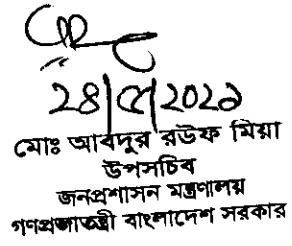 ২৪|৫|২০২১
মোঃ আবদুর রউফ মিয়া
উপসচিব
জনপ্রশাসন মন্ত্রণালয়
গণপ্রজাতন্ত্রী বাংলাদেশ সরকার